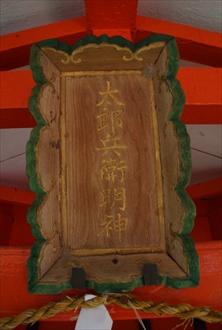 太郎兵衛明神